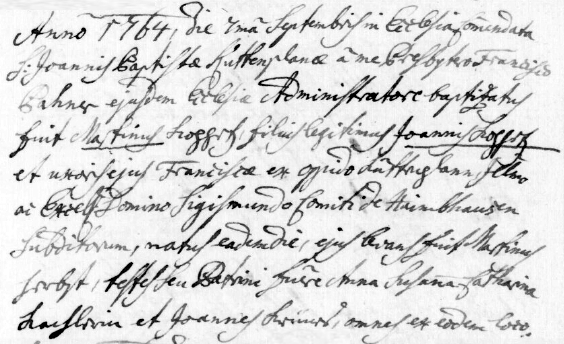 Anno 1764, die 7mâ Septembris in Ecclesia Comendata
S. Joannis Baptistæ Kuttenplanæ â me Presbytero Francisco
Pahner ejusdem Eclesiæ Administratore baptizatus
fuit Martinus filius legitimus Joannis
et uxoris ejus Franciscæ ex oppido Kuttenplann, Illmo
ac Excels. Domino Sigismundo Comiti de Haimbhausen
Subditorum, natus eadem die, ejus levans fuit Martinus
Herbst, testes seu Patrini fuêre Anna Susanna Catharina
et Joannes omnes ex eodem loco.